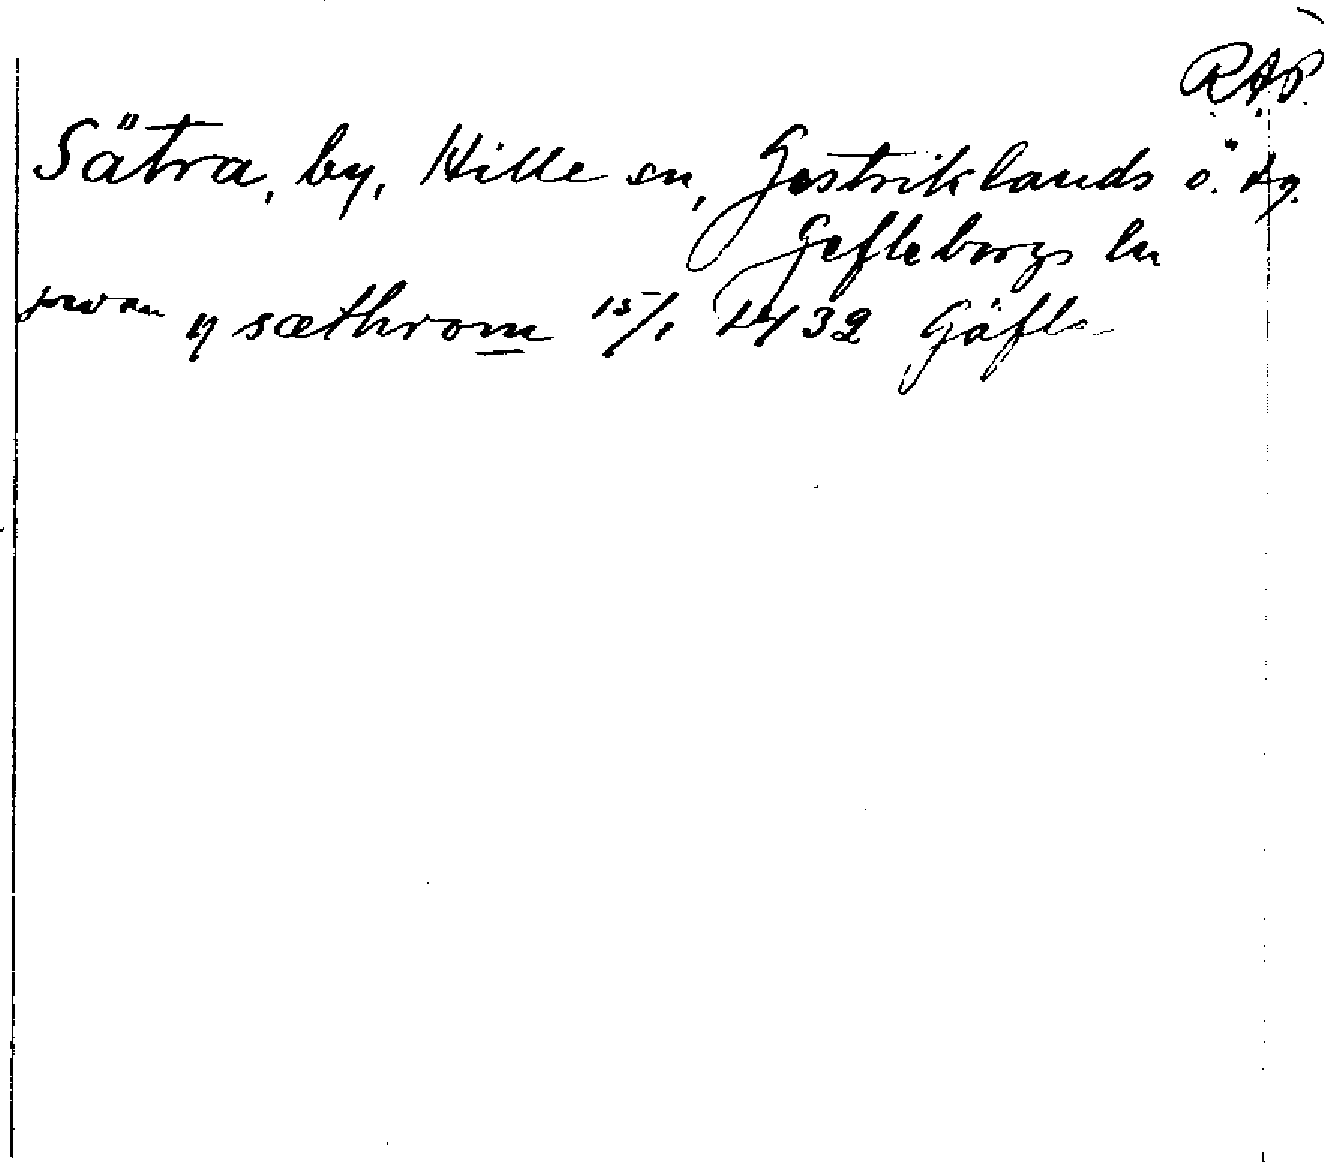 R.A.P.
Sätra, by, Hille sn, Gestriklands ö. dg.
Gefleborgs ln
y sæthrom 15/1 1432 Gäfle